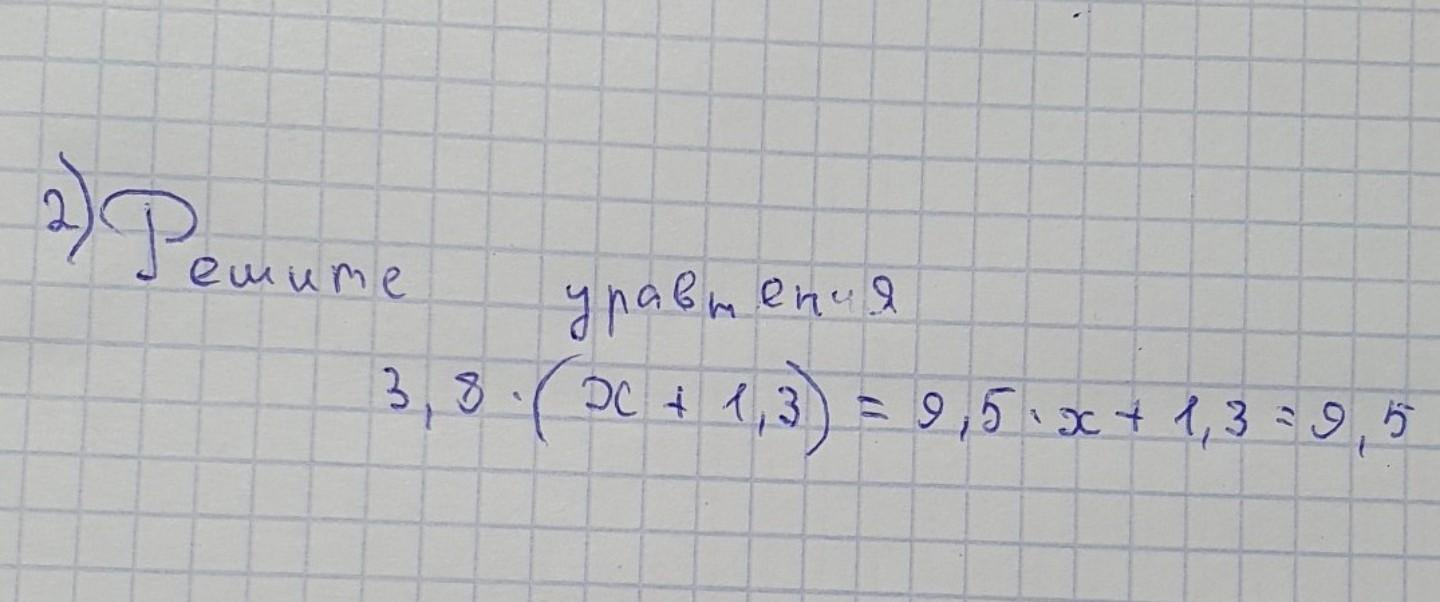 2) Решите уравнения
3,8 · (x + 1,3) = 9,5 · x + 1,3 = 9,5